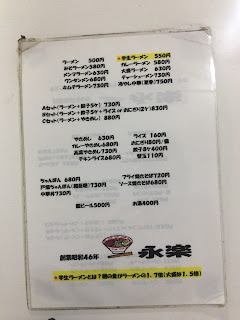 ラーメン 500円
みそラーメン580円
メンマラーメン630円
ワンタンメン680円
キムチラーメン730円
★学生ラーメン 550円
カレーラーメン580円
大盛ラーメン 630円
チャーシューメン730円
冷やし中華(夏季)750円
Aセット(ラーメン+餃子5ケ)730円
Bセット(ラーメン+餃子5ケ+ライス or おにぎり2ケ)830円
Cセット(ラーメン+やきめし) 880円
やきめし 630円
カレーやきめし680円
高菜やきめし730円
チキンライス680円
ライス 160円
おにぎり80円/個
餃子8ケ400円
替玉110円
ちゃんぽん 680円
戸畑ちゃんぽん(細蒸麺)730円
中華丼730円
フライ焼そば720円
ソース焼きそば680円
瓶ビール500円
お酒400円
創業昭和46年
永楽
★学生ラーメンとは?麺の量がラーメンの1.7倍(大盛は1.5倍)